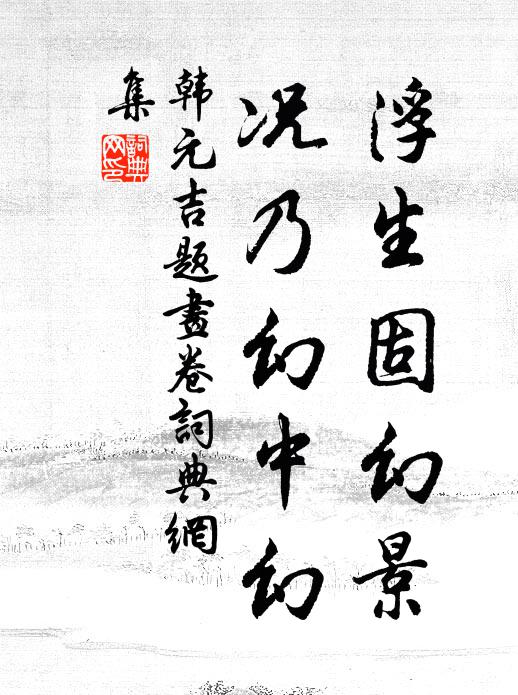 浮生固幻景
况乃幻中幻
韩元吉题畫卷詞典網
集
詞典网印